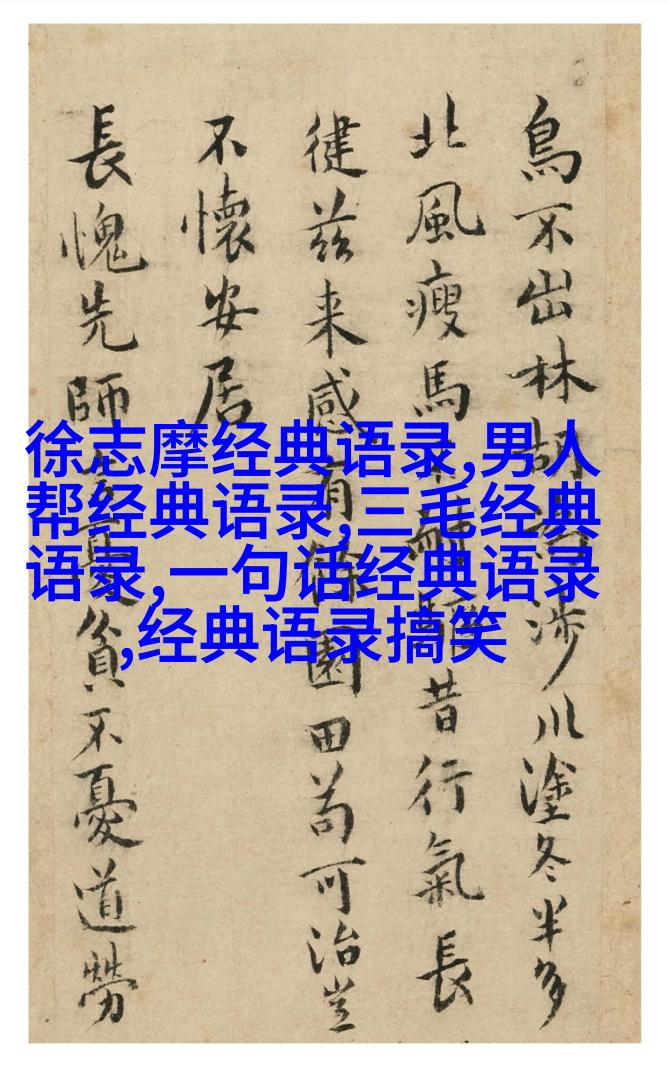 鳥不出林胡涉川塗冬半多
北風瘦馬耐昔行氣長
茲来感有餘園田苟可治豈
不懷安居
長愧先師貧不憂道勞
徐志摩经典语录,男人
帮经典语录,三毛经典
语录,一句话经典语录
,经典语录搞笑